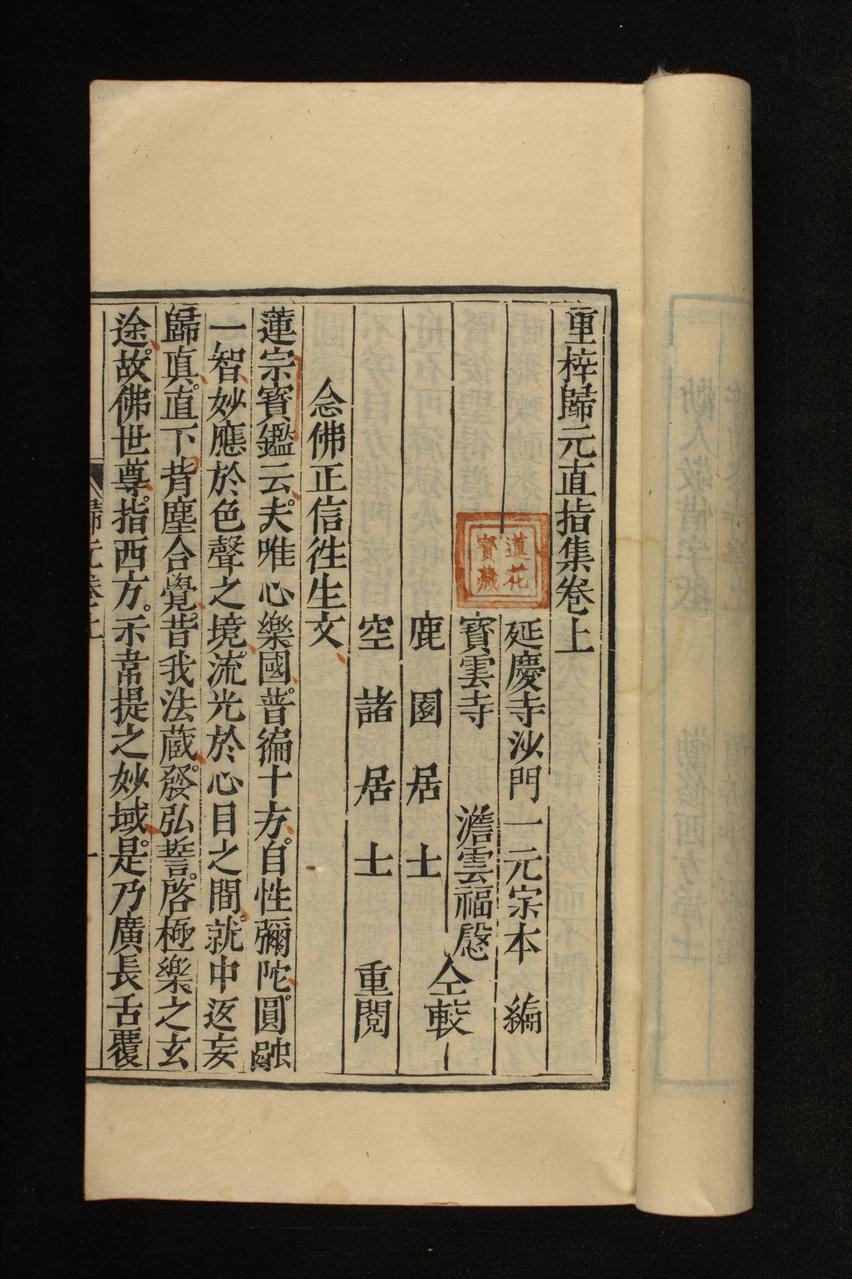 重梓歸元直指集卷上
延慶寺沙門一元宗本　編
寶雲寺　澹雲福慇
仝較
鹿園居士
空諸居士　重閱
念佛正信徃生文
蓮宗寳鑑云。夫唯心樂國。普徧十方。自性彌陀。圓融
一智。妙應於色聲之境。流光於心目之間。就中返妄
歸真。直下背塵合覺。昔我法藏。發弘誓。啓極樂之玄
途。故佛世尊。指西方。示韋提之妙域。是乃廣長舌覆
歸元卷上
一
蓮花
寶藏
勸人敬惜字紙
勤修西方淨土